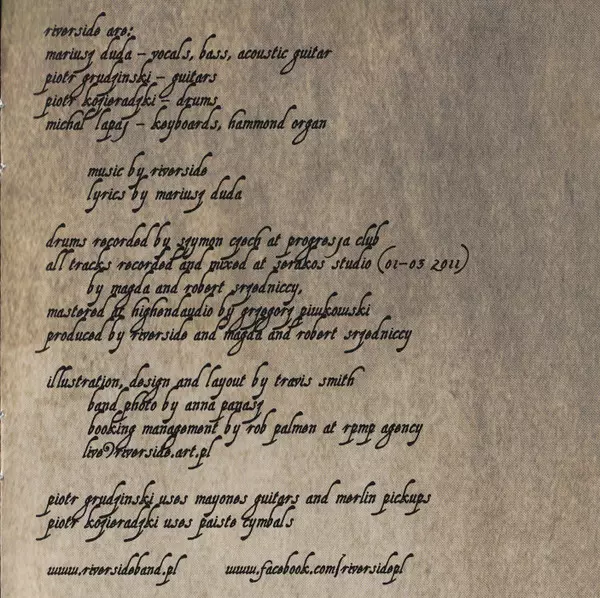 riverside are:
mariusz duda – vocals, bass, acoustic guitar
piotr grudzinski – guitars
piotr kozieradzki – drums
michal lapaj – keyboards, hammond organ
music by riverside
lyrics by mariusz duda
drums recorded by szymon czech at progresja club
all tracks recorded and mixed at serakos studio (01-03 2011)
by magda and robert srzedniccy,
mastered in highendaudio by grzegorz piwkowski
produced by riverside and magda and robert srzedniccy
illustration, design and layout by travis smith
band photo by anna panasz
booking management by rob palmen at rpmp agency
live@riverside.art.pl
piotr grudzinski uses mayones guitars and merlin pickups
piotr kozieradzki uses paiste cymbals
www.riversideband.pl www.facebook.com/riversidepl